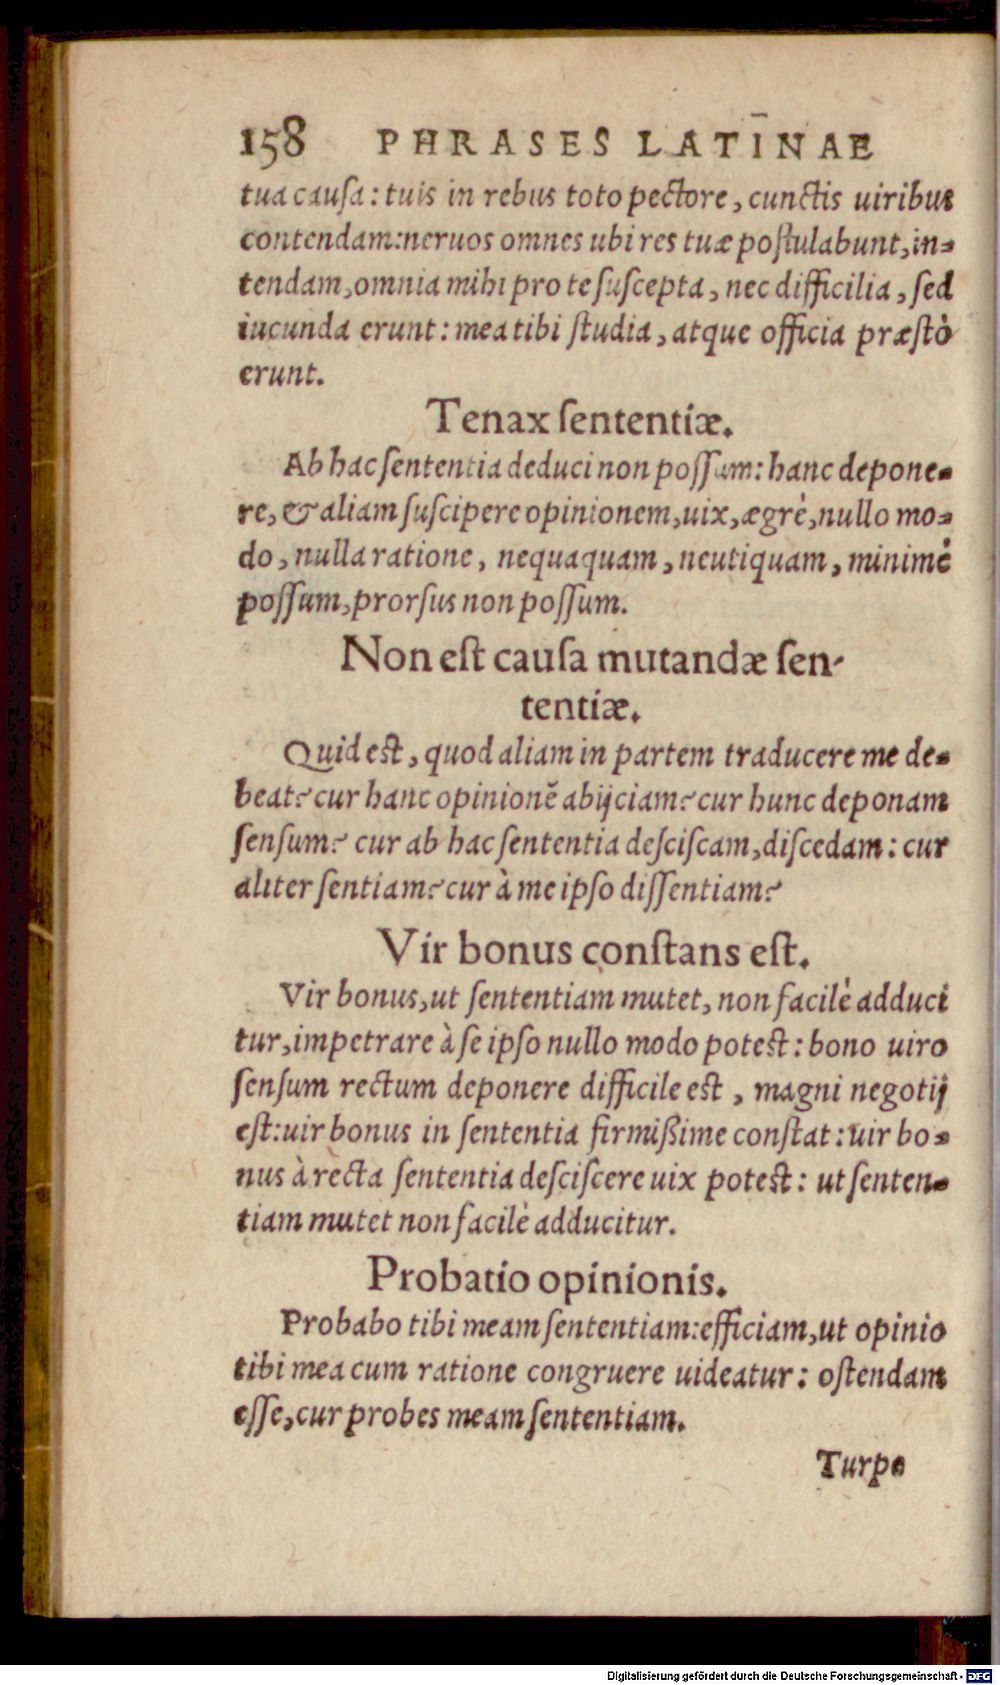 158 PHRASES LATINAE
tua causa: tuis in rebus toto pectore, cunctis uiribus
contendam: neruos omnes ubi res tuæ postulabunt, in-
tendam, omnia mihi pro te suscepta, nec difficilia, sed
iucunda erunt: mea tibi studia, atque officia præstò
erunt.
Tenax sententiæ.
Ab hac sententia deduci non possum: hanc depone-
re, & aliam suscipere opinionem, uix, ægrè, nullo mo-
do, nulla ratione, nequaquam, neutiquam, minimè
possum, prorsus non possum.
Non est causa mutandæ sen-
tentiæ.
Quid est, quod aliam in partem traducere me de-
beat? cur hanc opinionē abijciam? cur hunc deponam
sensum? cur ab hac sententia desciscam, discedam: cur
aliter sentiam? cur à me ipso dissentiam?
Vir bonus constans est.
Vir bonus, ut sententiam mutet, non facilè adduci
tur, impetrare à se ipso nullo modo potest: bono uiro
sensum rectum deponere difficile est, magni negotij
est: uir bonus in sententia firmißime constat: uir bo-
nus à recta sententia desciscere uix potest: ut senten-
tiam mutet non facilè adducitur.
Probatio opinionis.
Probabo tibi meam sententiam: efficiam, ut opinio
tibi mea cum ratione congruere uideatur: ostendam
esse, cur probes meam sententiam.
Turpe
Digitalisierung gefördert durch die Deutsche Forschungsgemeinschaft - DFG